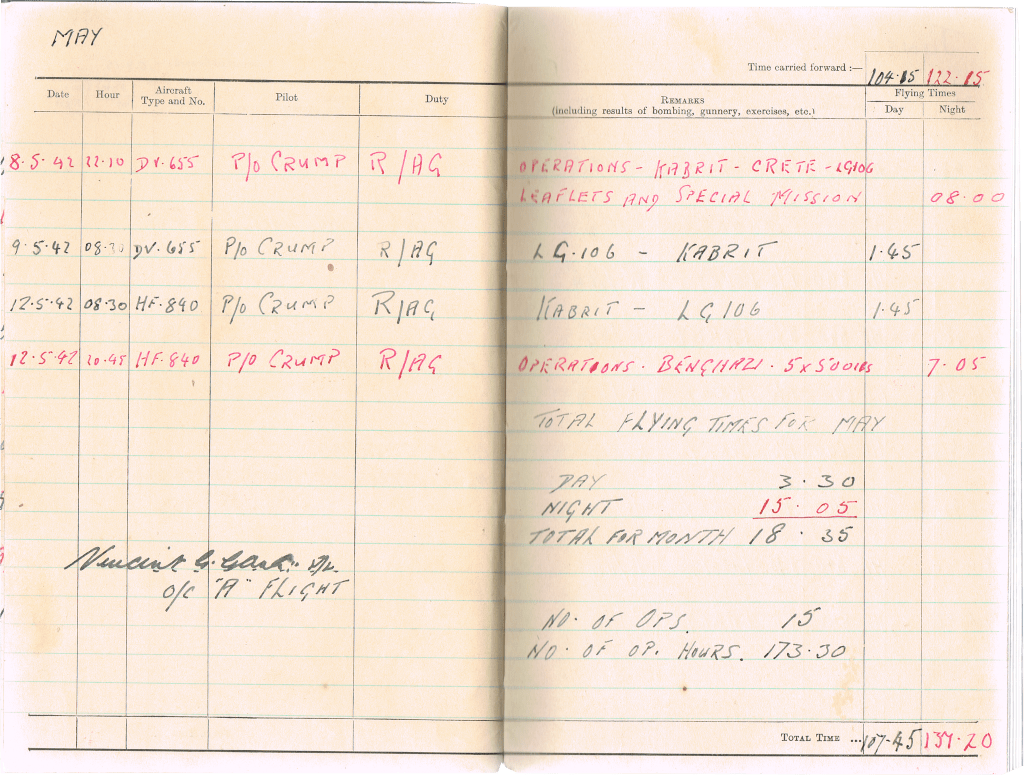 MAY
Time carried forward :— 104·15 122·15
Date Hour Aircraft Type and No. Pilot Duty REMARKS (including results of bombing, gunnery, exercises, etc.) Flying Times Day Night
8·5·42 22·10 DV·655 P/O CRUMP R/AG OPERATIONS – KABRIT – CRETE – LG106
LEAFLETS AND SPECIAL MISSION 08·00
9·5·42 08·30 DV·655 P/O CRUMP R/AG LG·106 – KABRIT 1·45
12·5·42 08·30 HF·840 P/O CRUMP R/AG KABRIT – LG106 1·45
12·5·42 20·45 HF·840 P/O CRUMP R/AG OPERATIONS · BENGHAZI · 5x500lbs 7·05
TOTAL FLYING TIMES FOR MAY
DAY 3·30
NIGHT 15·05
TOTAL FOR MONTH 18·35
Vincent G.
O/C "A" FLIGHT
NO. OF OPS. 15
NO. OF OP. HOURS. 173·30
TOTAL TIME ... 107·45 137·20